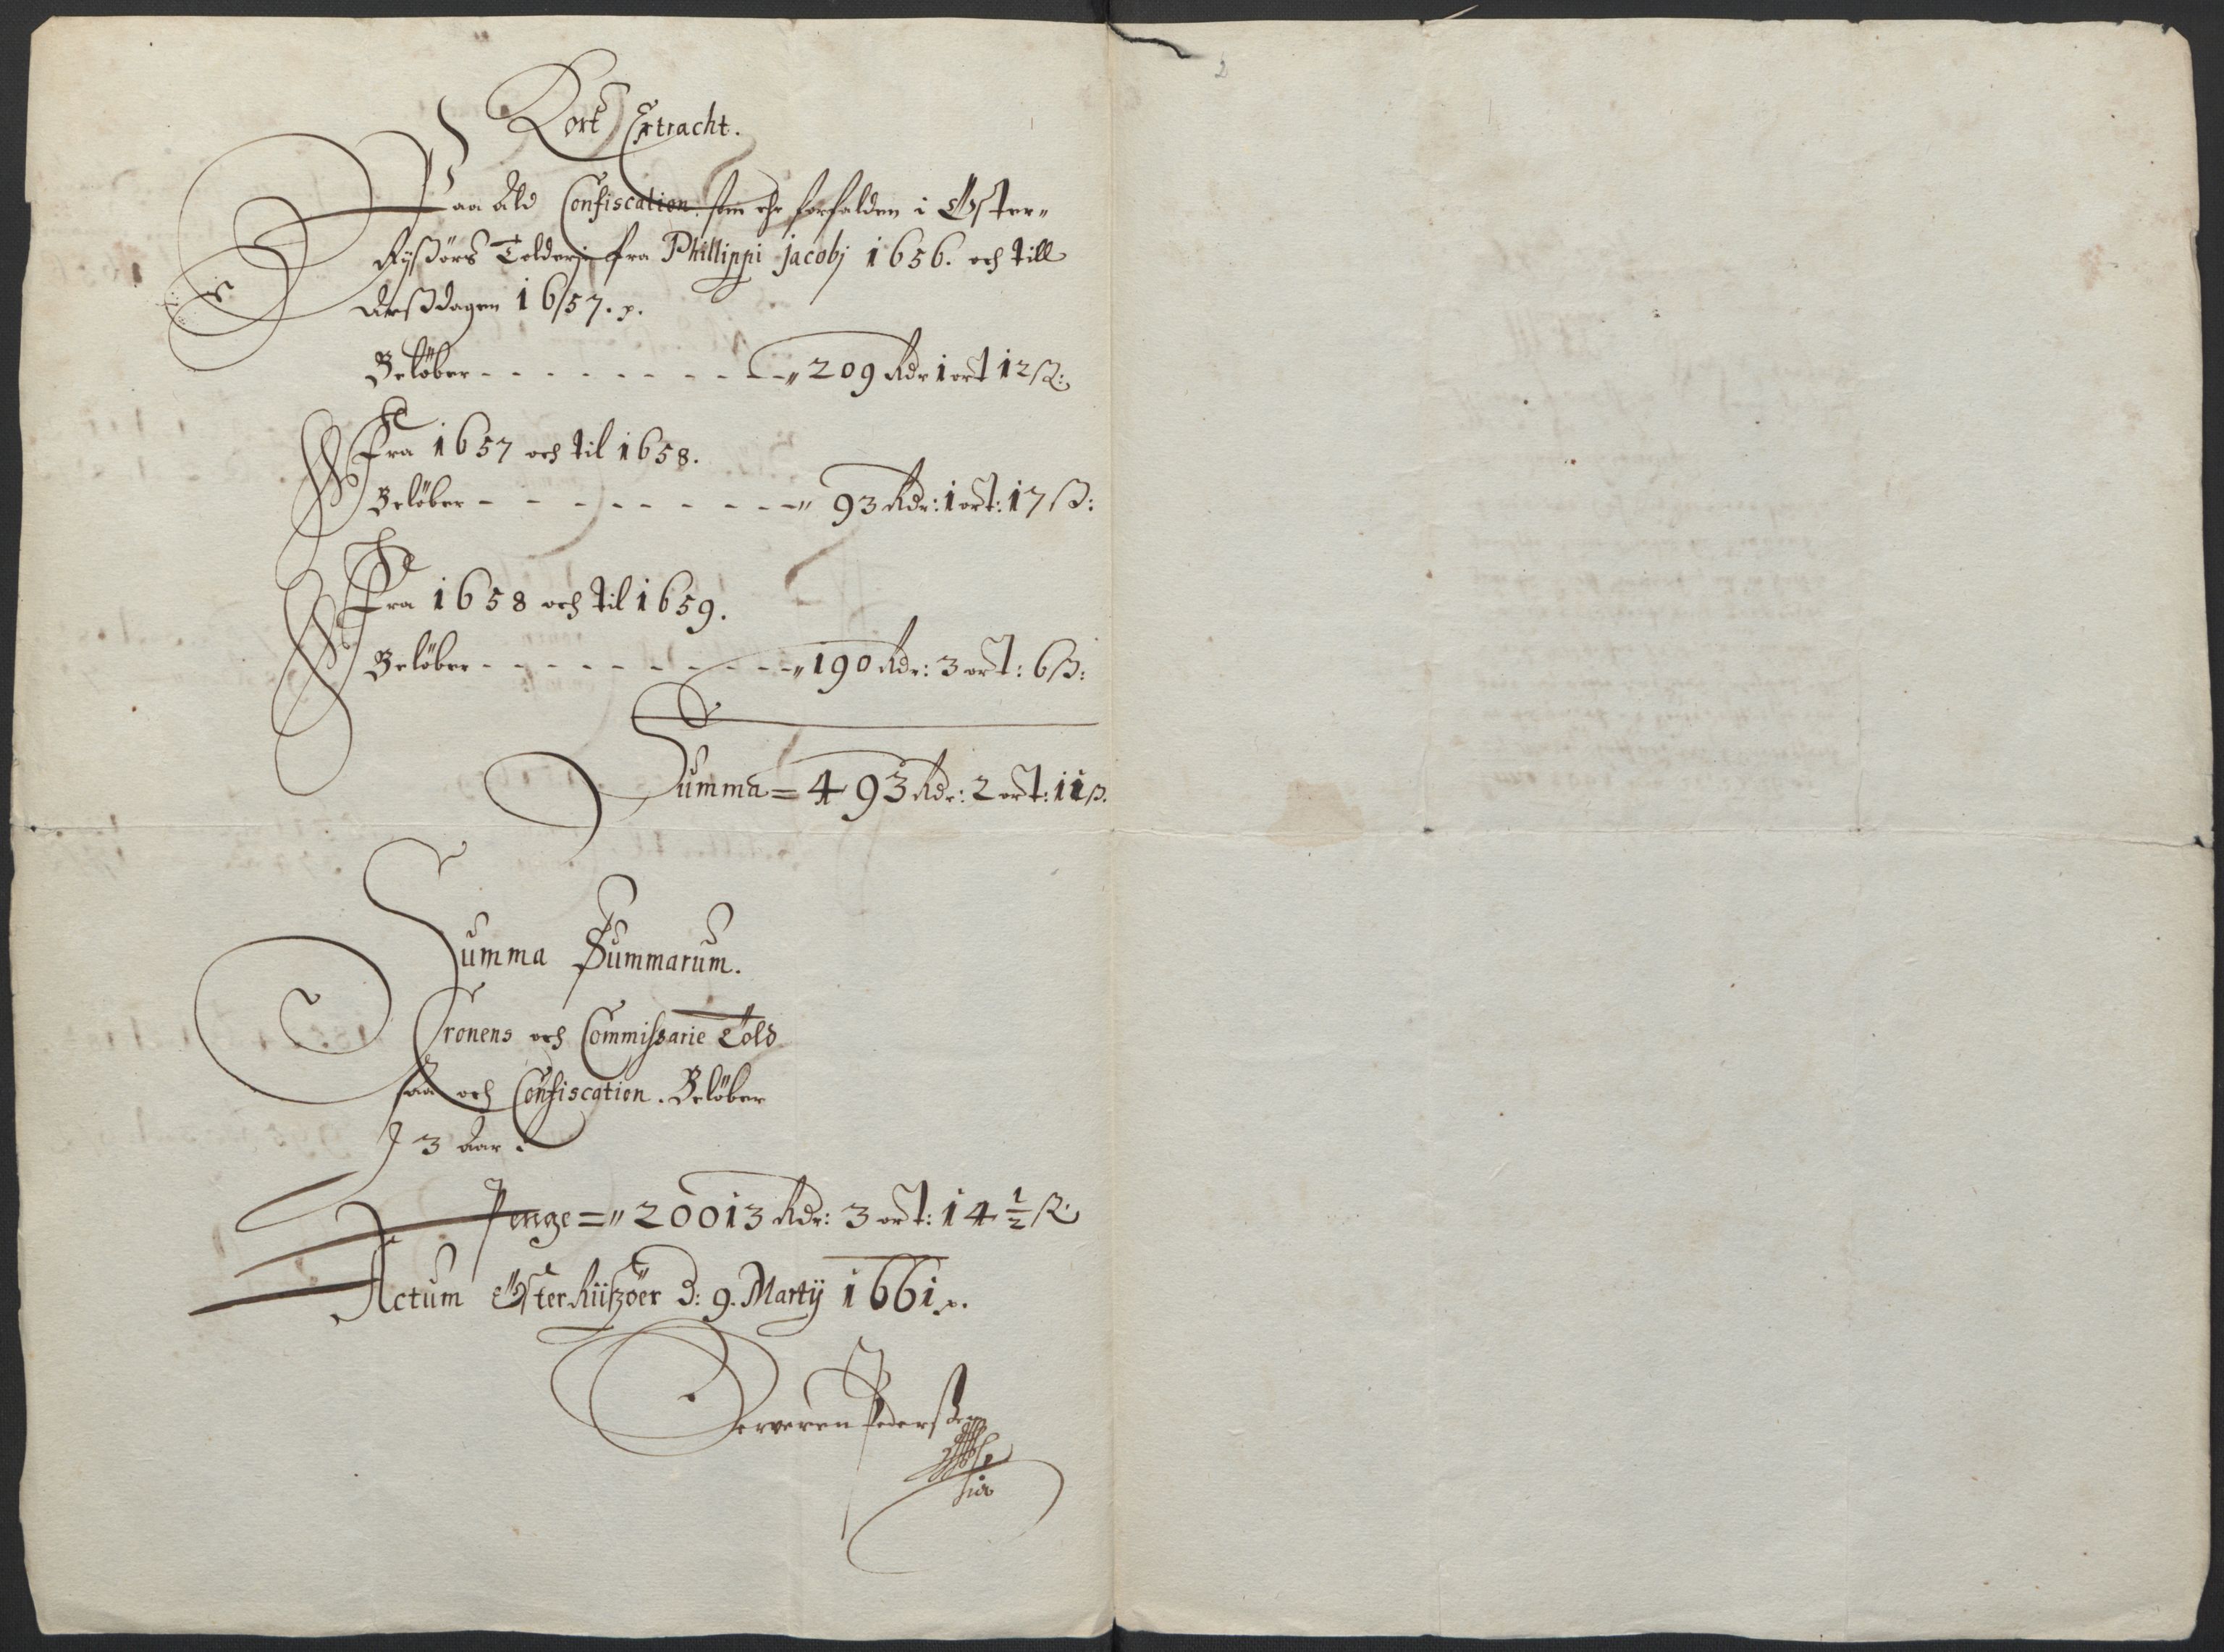 Kort Extracht.
Paa Ald Confiscation, som ehr forfalden i Øster-
Rysörs Tolderj fra Phillippi Jacobj 1656. och till
Aarssdagen 1657. p.
Belöber - - - - - - - - - " 209 Rdr 1 ort 12 ß:
Fra 1657 och til 1658.
Belöber - - - - - - - - - " 93 Rdr: 1 ort: 17 ß:
Fra 1658 och til 1659.
Belöber - - - - - - - - - " 190 Rdr: 3 ort: 6 ß:
Summa = 493 Rdr: 2 ort: 11 ß.
Summa Summarum.
Cronens och Commissarie Told
saa och Confiscation. Belöber
J 3 Aar.
Penge = " 20013 Rdr: 3 ort: 14 1/2 ß.
Actum Øster Riißöer d: 9. Martij 1661 p.
Pedersen
2